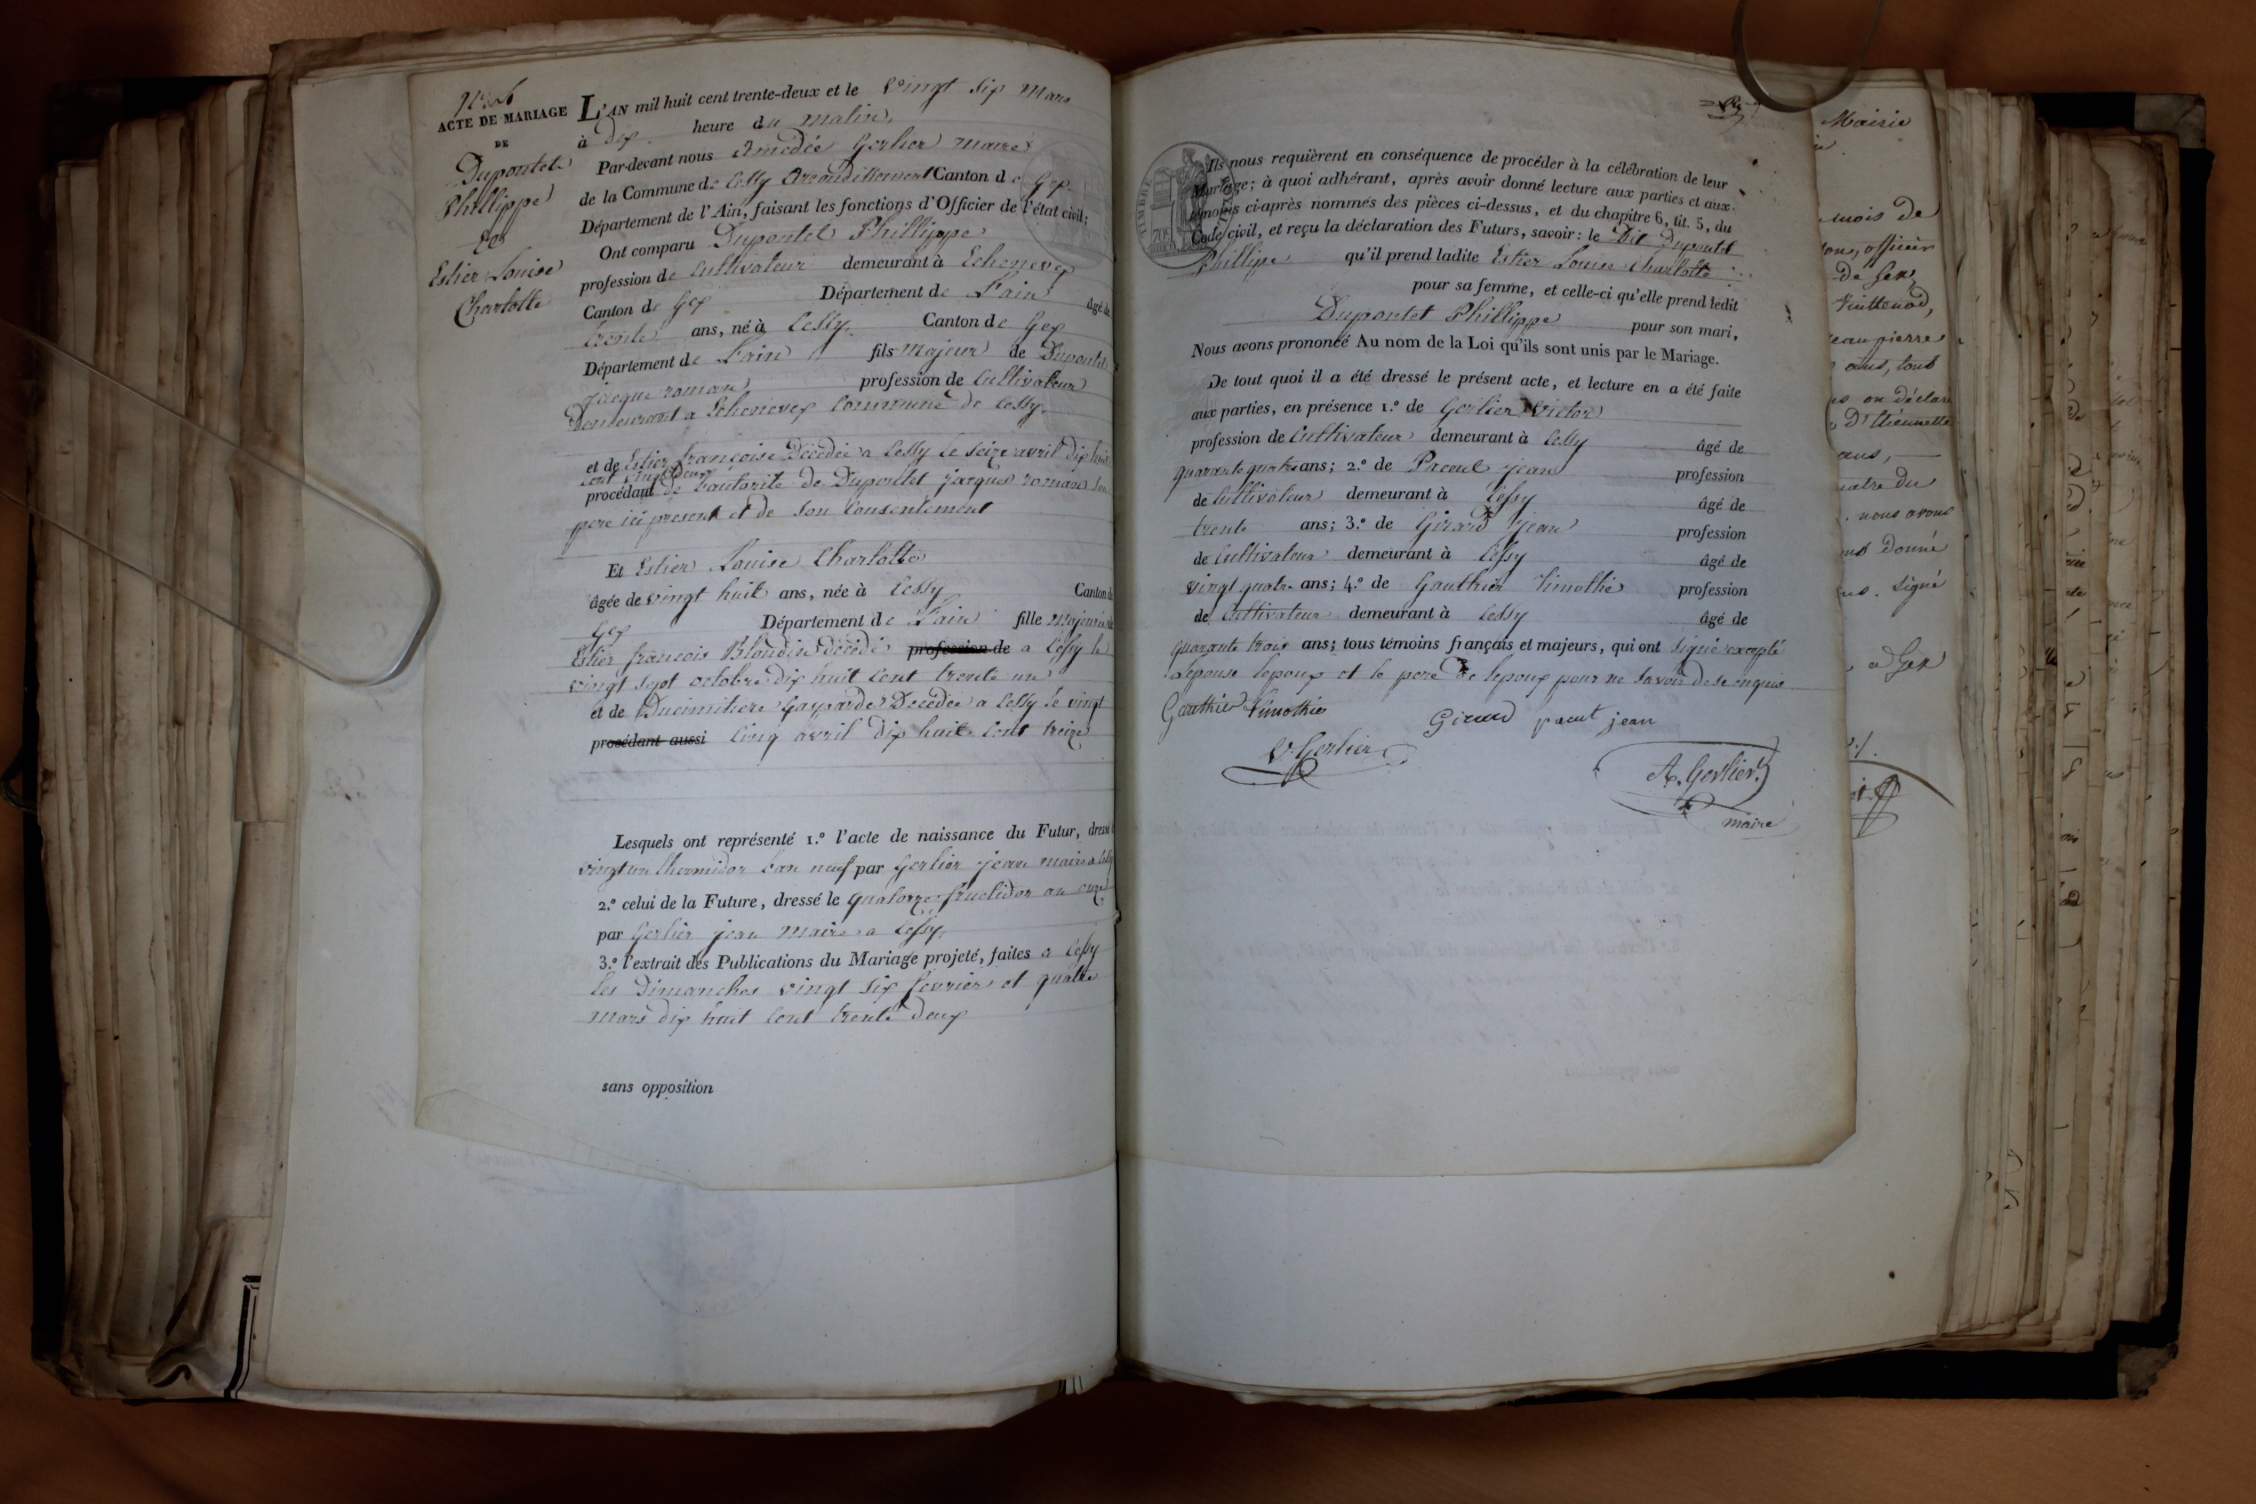 ACTE DE MARIAGE
DE
Dupontet
Phillippe
Et
Estier Louise
Charlotte
L'AN mil huit cent trente-deux et le vingt six mars
à dix heure du matin,
Par-devant nous Amédée Gerlier maire
de la Commune de Cessy arrondissement Canton de Gex
Département de l'Ain, faisant les fonctions d'Officier de l'état civil;
Ont comparu Dupontet Phillippe
profession de Cultivateur demeurant à Echenevex
Canton de Gex Département de L'ain âgé de
trente ans, né à Cessy. Canton de Gex
Département de L'ain fils majeur de Dupontet
jacque roman profession de Cultivateur
Demeurant a Echenevex Commune de Cessy.
et de Estier françoise Décédée a Cessy le seize avril dix huit
cent vingt deux
procédant de L'autorité de Dupontet jacques roman son
pere ici present et de son consentement
Et Estier Louise Charlotte
âgée de vingt huit ans, née à Cessy Canton de
Gex Département de L'ain fille majeure de
Estier françois Blondin décédé profession de a Cessy le
vingt sept octobre dix huit cent trente un
et de Ducimitiere Gasparde Décédée a Cessy le vingt
procédant aussi Cinq avril dix huit cent treize
Lesquels ont représenté 1.º l'acte de naissance du Futur, dressé
vingt un thermidor l'an neuf par Gerlier jean maire a Cessy
2.º celui de la Future, dressé le quatorze fructidor an onze
par Gerlier jean maire a Cessy,
3.º l'extrait des Publications du Mariage projeté, faites a Cessy
les Dimanches vingt six fevrier et quatre
mars dix huit cent trente deux
sans opposition
Ils nous requièrent en conséquence de procéder à la célébration de leur
Mariage; à quoi adhérant, après avoir donné lecture aux parties et aux
témoins ci-après nommés des pièces ci-dessus, et du chapitre 6, tit. 5, du
Code civil, et reçu la déclaration des Futurs, savoir: le Dit Dupontet
Phillipe qu'il prend ladite Estier Louise Charlotte
pour sa femme, et celle-ci qu'elle prend ledit
Dupontet Phillippe pour son mari,
Nous avons prononcé Au nom de la Loi qu'ils sont unis par le Mariage.
De tout quoi il a été dressé le présent acte, et lecture en a été faite
aux parties, en présence 1.º de Gerlier Victor
profession de Cultivateur demeurant à Cessy âgé de
quarante quatre ans; 2.º de jean profession
de Cultivateur demeurant à Cessy âgé de
trente ans; 3.º de Girard jean profession
de Cultivateur demeurant à Cessy âgé de
vingt quatre ans; 4.º de Gauthier Timothé profession
de Cultivateur demeurant à Cessy âgé de
quarante trois ans; tous témoins français et majeurs, qui ont signé excepté
Lepouse lepoux et le pere de lepoux pour ne savoir de se enquis
Gauthier Timothée Girard jean
V. Gerlier
A. Gerlier
maire
Mairie
mois de
officier
de Gex,
Vuittenod,
jean pierre
ans, tous
D'Etiennette
ans,
nous avons
Donné
Signé
a Gex